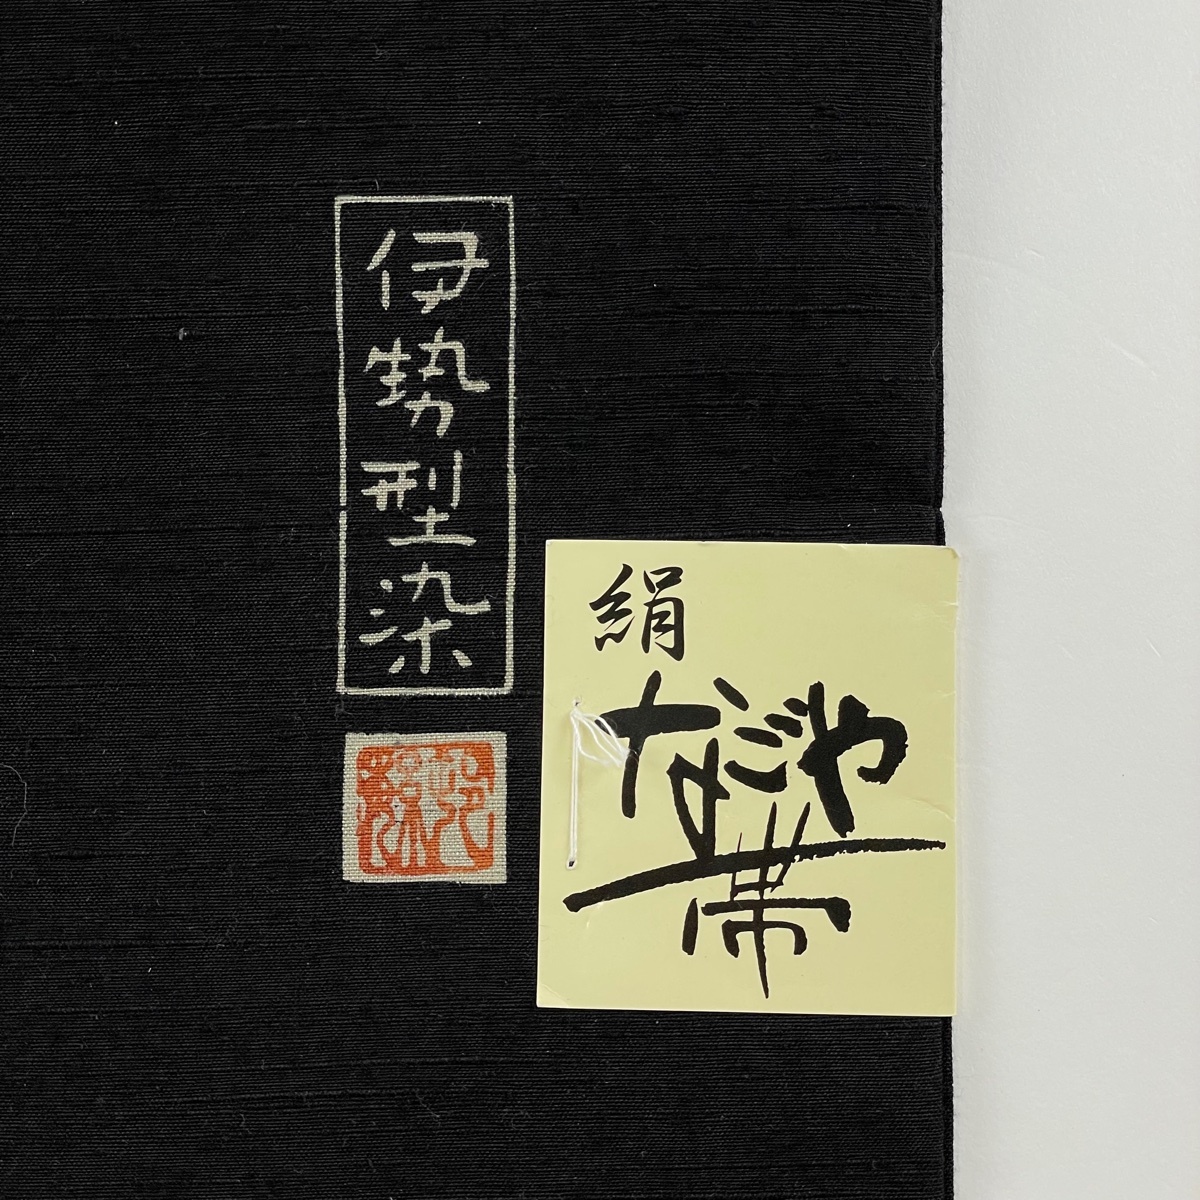 伊勢型染
絹
なごや
帯